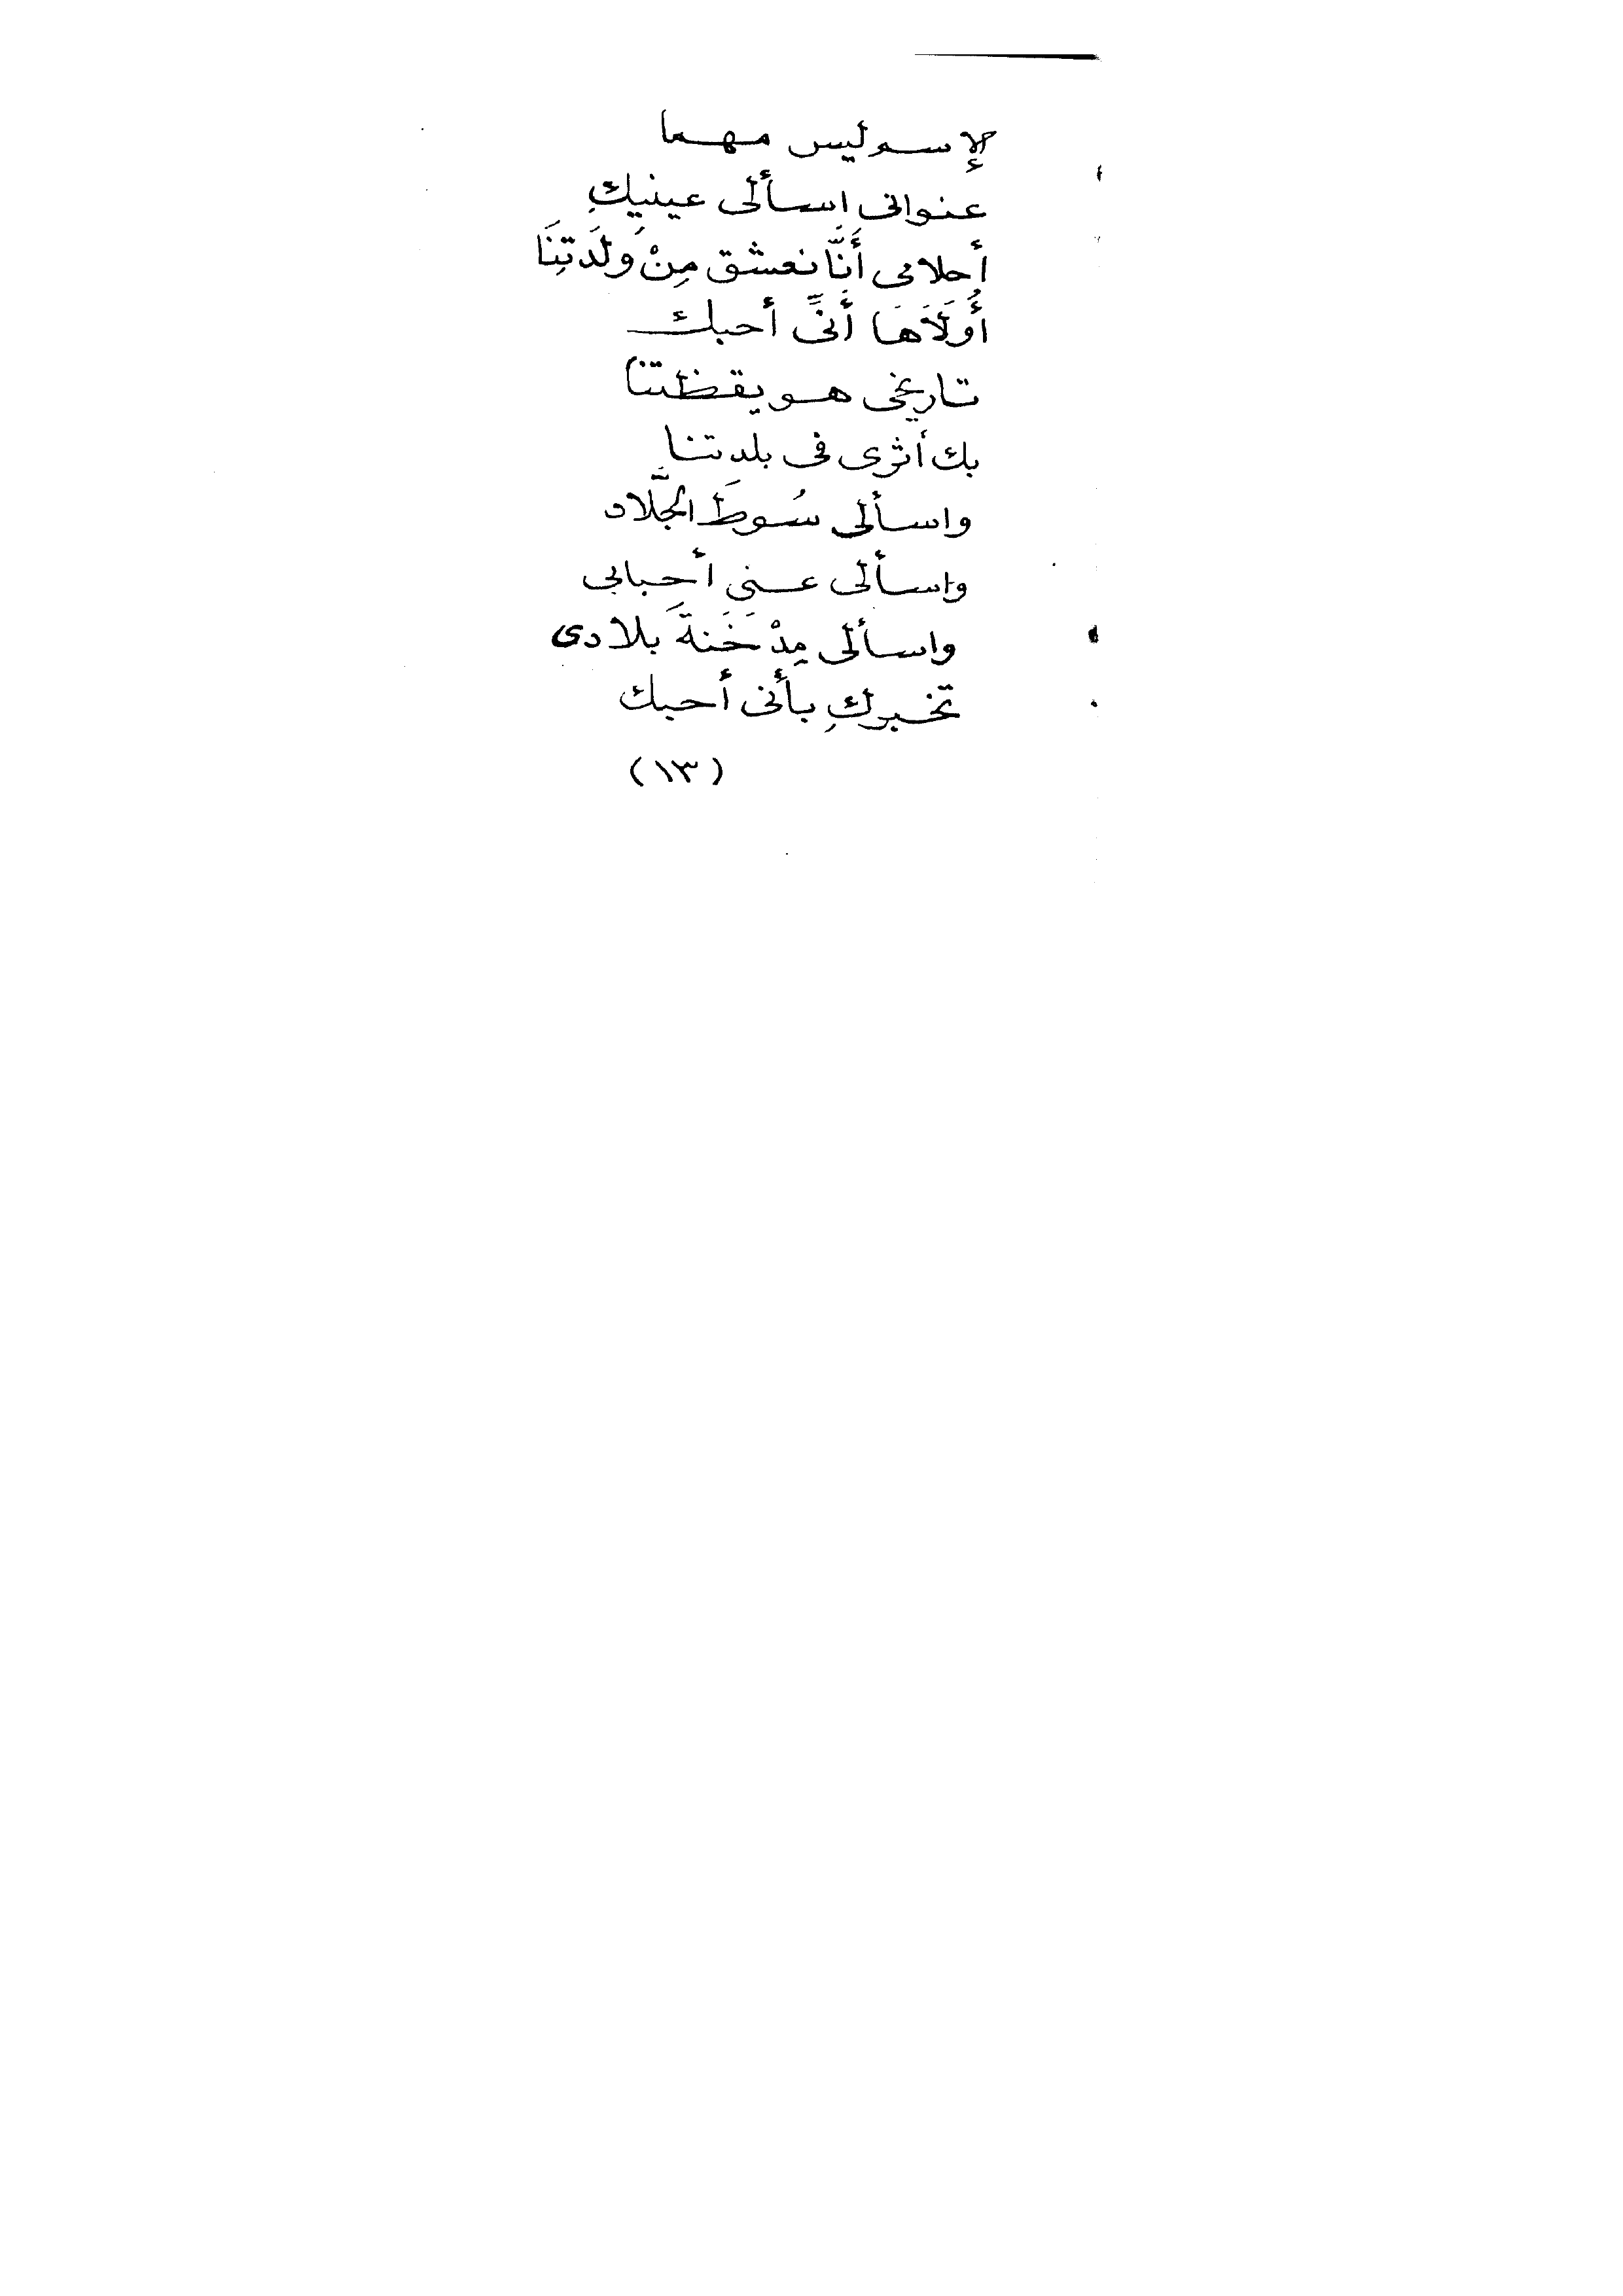 الإسم ليس مهما
عنوانى اسألى عينيكِ
أحلامى أَنَّا نعشق مِنْ وِلَدَتِنَا
أُولَاهَا أَنِّى أحبك
تاريخى هو يقظتنا
بك أثرى فى بلدتنا
واسألى سُوطَ الجَلَّاد
واسألى عنى أحبابى
واسألى مِدْخَنةَ بلادى
تخبركِ بأنى أحبك
(١٣)